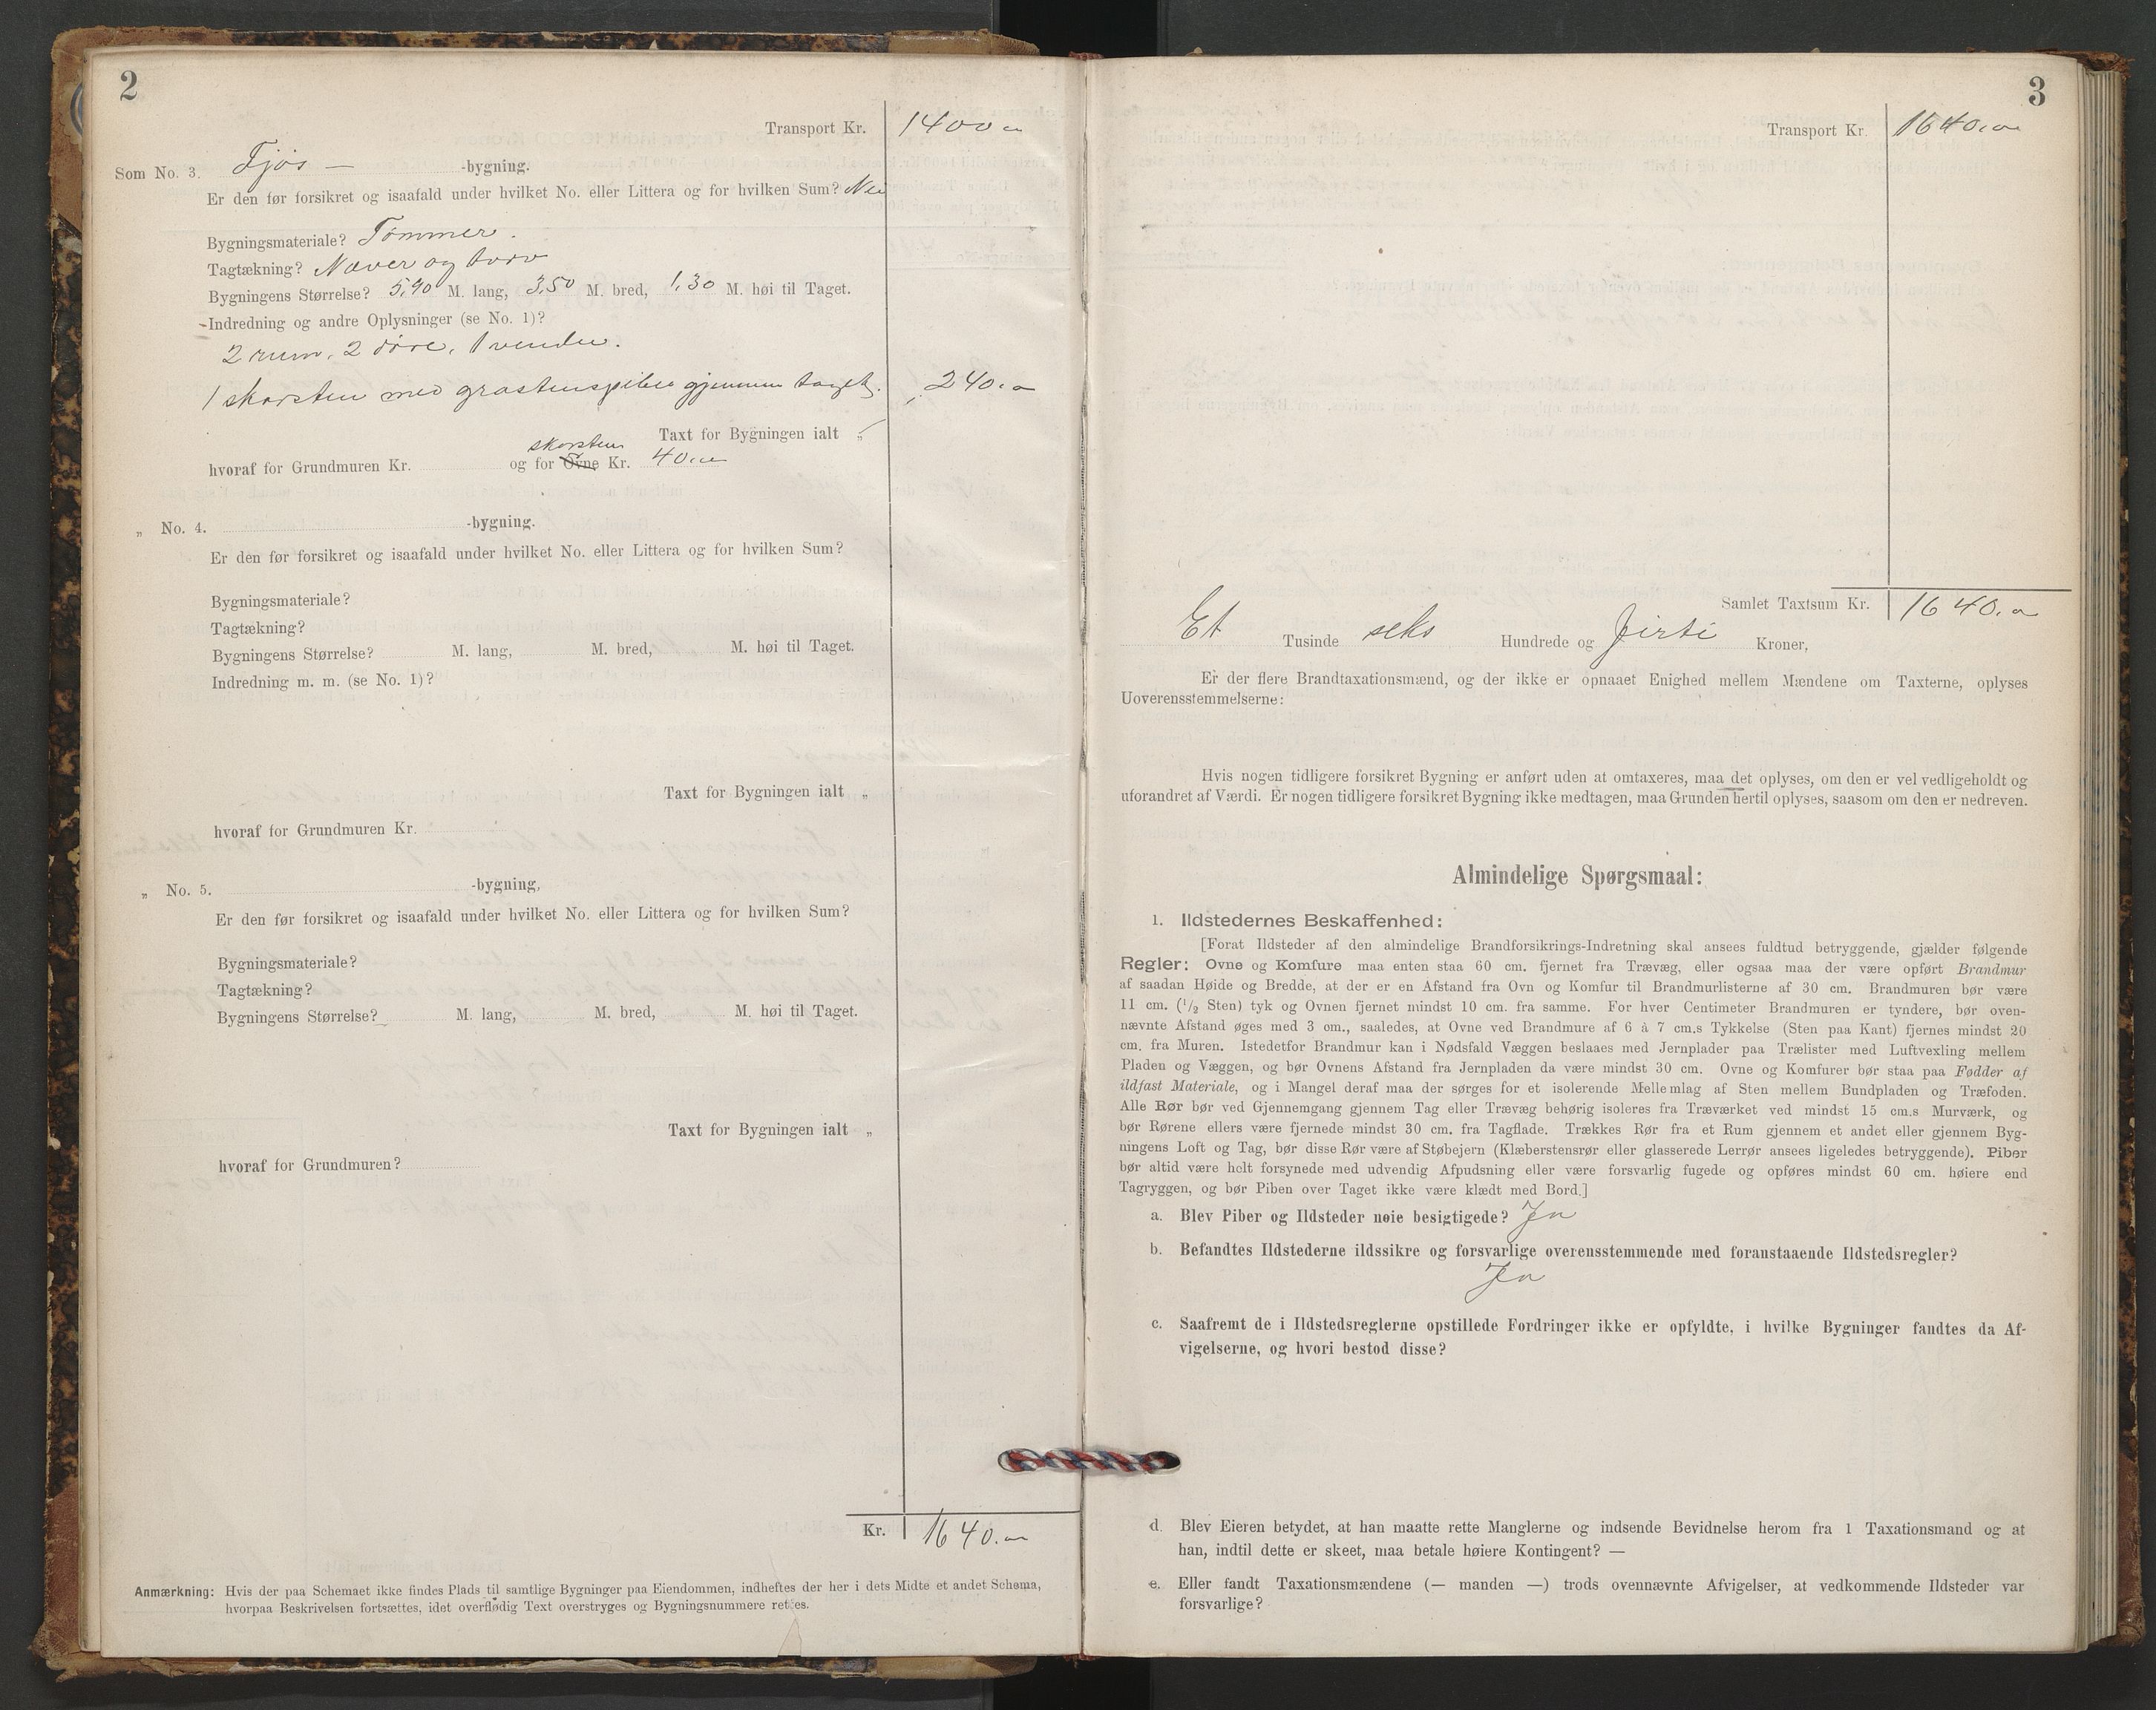 2
Transport Kr. 1400,00
Som No. 3. Fjøs — -bygning.
Er den før forsikret og isaafald under hvilket No. eller Littera og for hvilken Sum? Nei
Bygningsmateriale? Tømmer.
Tagtækning? Næver og torv
Bygningens Størrelse? 5,90 M. lang, 3,50 M. bred, 1,30 M. høi til Taget.
Indredning og andre Oplysninger (se No. 1)?
2 rum, 2 døre, 1 vendu.
1 skorsten med graastenspibe gjennem taget. 240,00
Taxt for Bygningen ialt „
skorsten
hvoraf for Grundmuren Kr. og for Ovne Kr. 40,00
„ No. 4. -bygning.
Er den før forsikret og isaafald under hvilket No. eller Littera og for hvilken Sum?
Bygningsmateriale?
Tagtækning?
Bygningens Størrelse? M. lang, M. bred, M. høi til Taget.
Indredning m. m. (se No. 1)?
Taxt for Bygningen ialt „
hvoraf for Grundmuren Kr.
„ No. 5. -bygning,
Er den før forsikret og isaafald under hvilket No. eller Littera og for hvilken Sum?
Bygningsmateriale?
Tagtækning?
Bygningens Størrelse? M. lang, M. bred, M. høi til Taget.
Taxt for Bygningen ialt „
hvoraf for Grundmuren?
Kr. 1640.00
Anmærkning: Hvis der paa Schemaet ikke findes Plads til samtlige Bygninger paa Eiendommen, indheftes der her i dets Midte et andet Schema,
hvorpaa Beskrivelsen fortsættes, idet overflødig Text overstryges og Bygningsnummere rettes.
3
Transport Kr. 1640,00
Samlet Taxtsum Kr. 1640,00
Et Tusinde seks Hundrede og firti Kroner,
Er der flere Brandtaxationsmænd, og der ikke er opnaaet Enighed mellem Mændene om Taxterne, oplyses
Uoverensstemmelserne:
Hvis nogen tidligere forsikret Bygning er anført uden at omtaxeres, maa det oplyses, om den er vel vedligeholdt og
uforandret af Værdi. Er nogen tidligere forsikret Bygning ikke medtagen, maa Grunden hertil oplyses, saasom om den er nedreven.
Almindelige Spørgsmaal:
1. Ildstedernes Beskaffenhed:
[Forat Ildsteder af den almindelige Brandforsikrings-Indretning skal ansees fuldtud betryggende, gjælder følgende
Regler: Ovne og Komfure maa enten staa 60 cm. fjernet fra Trævæg, eller ogsaa maa der være opført Brandmur
af saadan Høide og Bredde, at der er en Afstand fra Ovn og Komfur til Brandmurlisterne af 30 cm. Brandmuren bør være
11 cm. (1/2 Sten) tyk og Ovnen fjernet mindst 10 cm. fra samme. For hver Centimeter Brandmuren er tyndere, bør oven-
nævnte Afstand øges med 3 cm., saaledes, at Ovne ved Brandmure af 6 à 7 cm.s Tykkelse (Sten paa Kant) fjernes mindst 20
cm. fra Muren. Istedetfor Brandmur kan i Nødsfald Væggen beslaaes med Jernplader paa Trælister med Luftvexling mellem
Pladen og Væggen, og bør Ovnens Afstand fra Jernpladen da være mindst 30 cm. Ovne og Komfurer bør staa paa Fødder af
ildfast Materiale, og i Mangel deraf maa der sørges for et isolerende Mellemlag af Sten mellem Bundpladen og Træfoden.
Alle Rør bør ved Gjennemgang gjennem Tag eller Trævæg behørig isoleres fra Træværket ved mindst 15 cm.s Murværk, og
bør Rørene ellers være fjernede mindst 30 cm. fra Tagflade. Trækkes Rør fra et Rum gjennem et andet eller gjennem Byg-
ningens Loft og Tag, bør disse Rør være af Støbejern (Klæberstensrør eller glasserede Lerrør ansees ligeledes betryggende). Piber
bør altid være helt forsynede med udvendig Afpudsning eller være forsvarlig fugede og opføres mindst 60 cm. høiere end
Tagryggen, og bør Piben over Taget ikke være klædt med Bord.]
a. Blev Piber og Ildsteder nøie besigtigede? Ja
b. Befandtes Ildstederne ildssikre og forsvarlige overensstemmende med foranstaaende Ildstedsregler?
Ja
c. Saafremt de i Ildstedsreglerne opstillede Fordringer ikke er opfyldte, i hvilke Bygninger fandtes da Af-
vigelserne, og hvori bestod disse?
d. Blev Eieren betydet, at han maatte rette Manglerne og indsende Bevidnelse herom fra 1 Taxationsmand og at
han, indtil dette er skeet, maa betale høiere Kontingent? —
e. Eller fandt Taxationsmændene (— manden —) trods ovennævnte Afvigelser, at vedkommende Ildsteder var
forsvarlige?